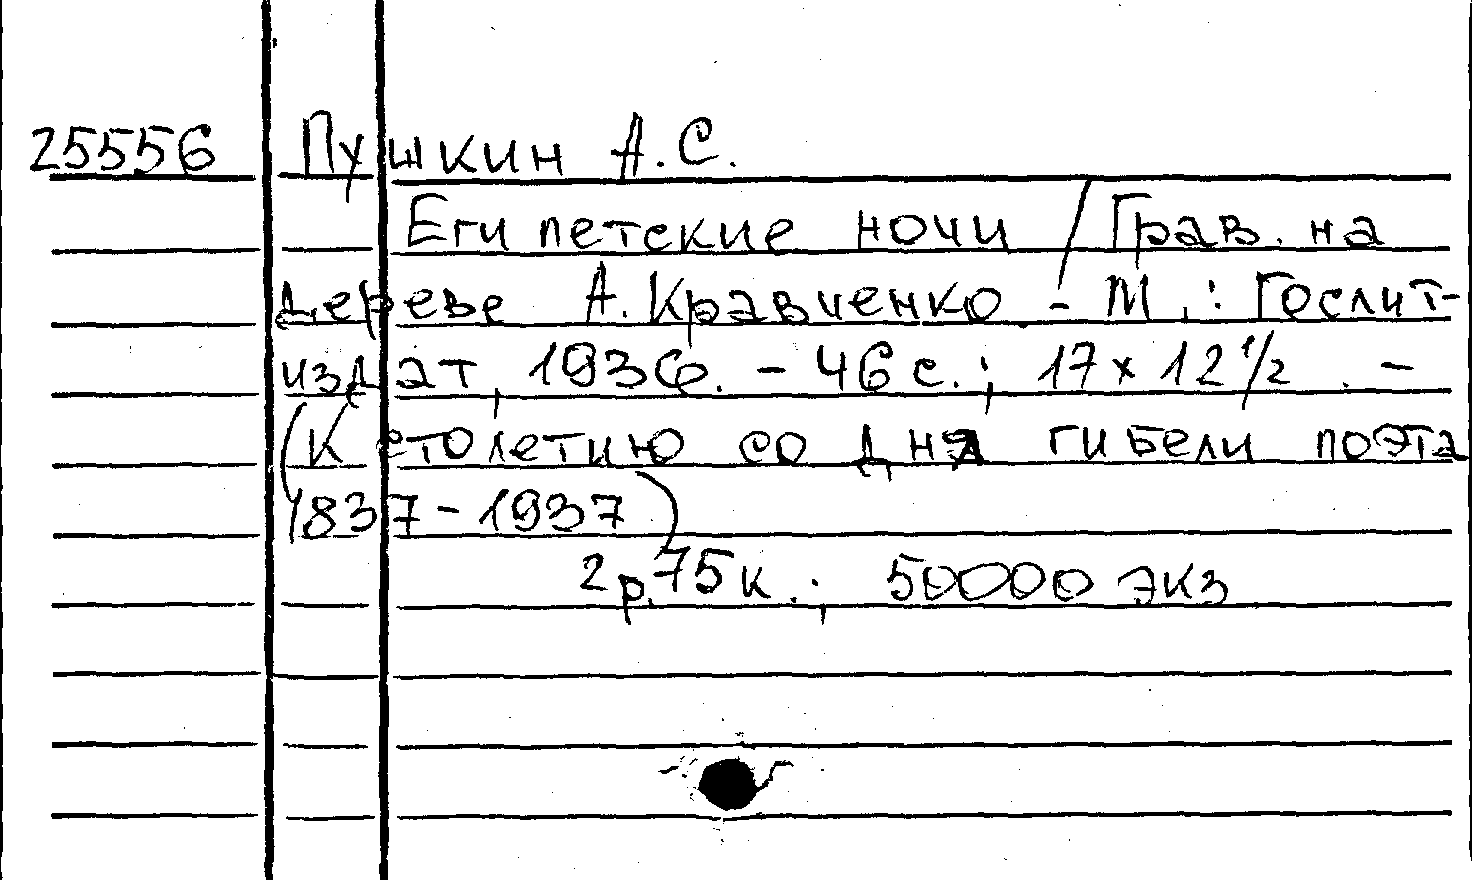 25556 Пушкин А.С.
Египетские ночи / Грав. на
дереве А. Кравченко. - М.: Гослит-
издат, 1936. - 46 с.; 17 х 12 1/2. -
(К столетию со дня гибели поэта
1837 - 1937)
2 р. 75 к.; 50000 экз